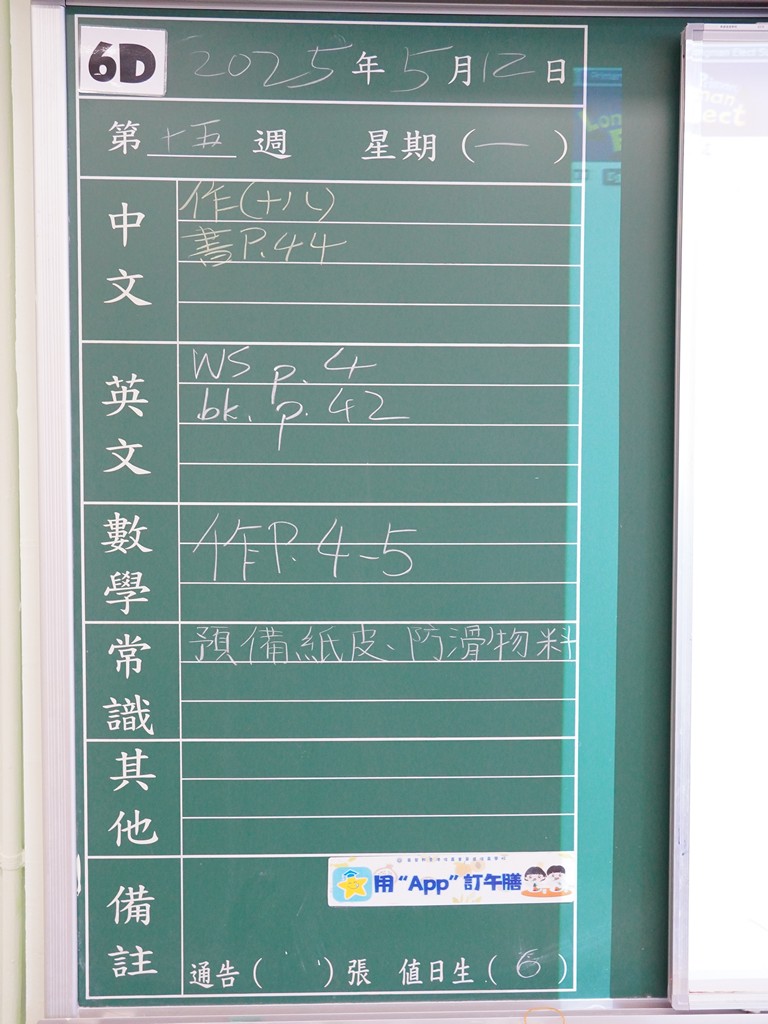 6D 2025年5月12日
第十五週 星期(一)
中文
作(十八)
書P.44
英文
WS p.4
bk. p.42
數學
作P.4-5
常識
預備紙皮、防滑物料
其他
備註
用“App”訂午膳
通告( )張 值日生(6)